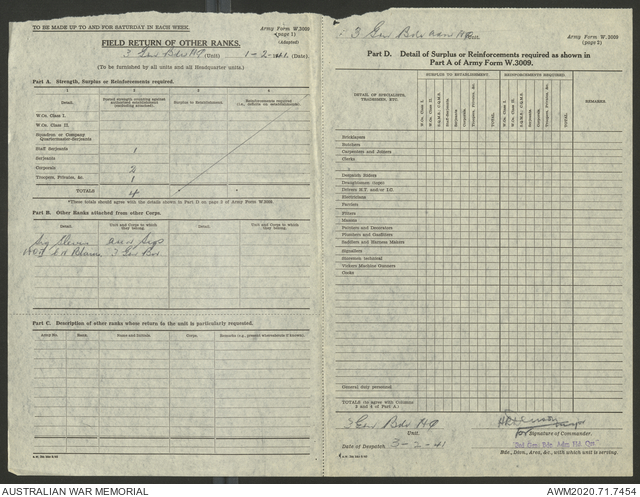 TO BE MADE UP TO AND FOR SATURDAY IN EACH WEEK.
Army Form W.3009
(page 1)
(Adapted)
FIELD RETURN OF OTHER RANKS.
3 Gen Bde HQ (Unit) 1-2-41. (Date)
(To be furnished by all units and all Headquarter units.)
Part A. Strength, Surplus or Reinforcements required.
1 2 3 4
Detail.
Surplus to Establishment.
Reinforcements required
(i.e., deficits on establishment).
W.Os. Class I.
W.Os. Class II.
Squadron or Company
Quartermaster-Serjeants
Staff Serjeants 1
Serjeants
Corporals 2
Troopers, Privates, &c. 1
TOTALS 4
*These totals should agree with the details shown in Part D on page 2 of Army Form W.3009.
Part B. Other Ranks attached from other Corps.
Detail. Unit and Corps to which they belong. Detail. Unit and Corps to which they belong.
Sig
3 Gen Bde
Part C. Description of other ranks whose return to the unit is particularly requested.
Army No. Rank. Name and Initials. Corps. Remarks (e.g., present whereabouts if known).
3 Gen Bde Adm HQ
Army Form W.3009
(page 2)
Part D. Detail of Surplus or Reinforcements required as shown in
Part A of Army Form W.3009.
DETAIL OF SPECIALISTS,
TRADESMEN, ETC.
SURPLUS TO ESTABLISHMENT. REINFORCEMENTS REQUIRED.
W.Os. Class I. W.Os. Class II. Serjeants Corporals Troopers, Privates, &c. TOTAL.
REMARKS.
Bricklayers
Butchers
Carpenters and Joiners
Clerks
Despatch Riders
Draughtsmen (topo)
Drivers M.T. and/or I.C.
Electricians
Farriers
Fitters
Masons
Painters and Decorators
Plumbers and Gasfitters
Saddlers and Harness Makers
Signallers
Storemen technical
Vickers Machine Gunners
Cooks
General duty personnel
TOTALS (to agree with Columns
3 and 4 of Part A.)
3 Gen Bde HQ
Unit.
for Signature of Commander.
Date of Despatch 3-2-41
Bde., Divn., Area, &c., with which unit is serving.
AUSTRALIAN WAR MEMORIAL
AWM2020.71.7454